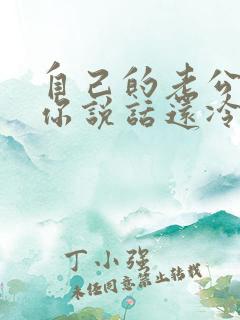 自己的老公
你说话还冷
丁小强
未经同意禁止转载